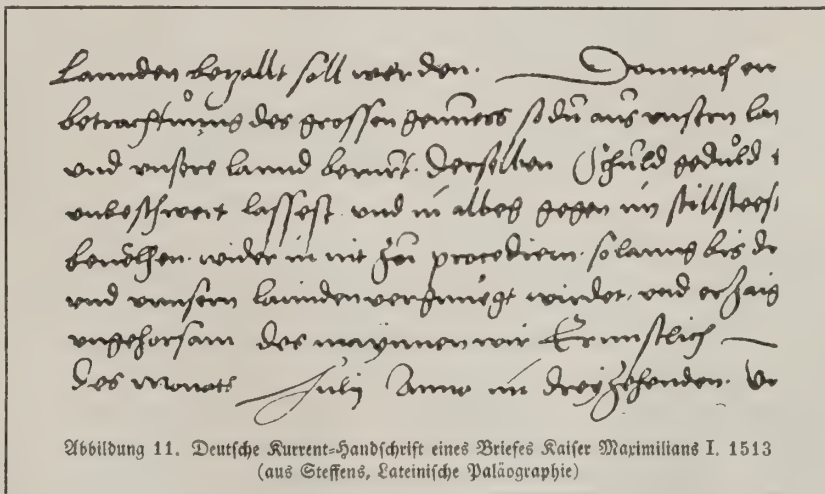 Lannden bezallt soll werden. Demnach en
betrachtnung des grossen gewins so du aus unsern lan
und unsere lannd berurt. derselben Schuld geduld
unbeschwert lassest und in albeg gegen im stillsteest
bevelhen wider in nit zu procediern. solanng bis de
und unnsern lannden vergnuegt wirdet. und erzaig
ungehorsam des maynnen wir Ernnstlich
des Monats Julij Anno im dreyzehenden.
Abbildung 11. Deutsche Kurrent=Handschrift eines Briefes Kaiser Maximilians I. 1513
(aus Steffens, Lateinische Paläographie)